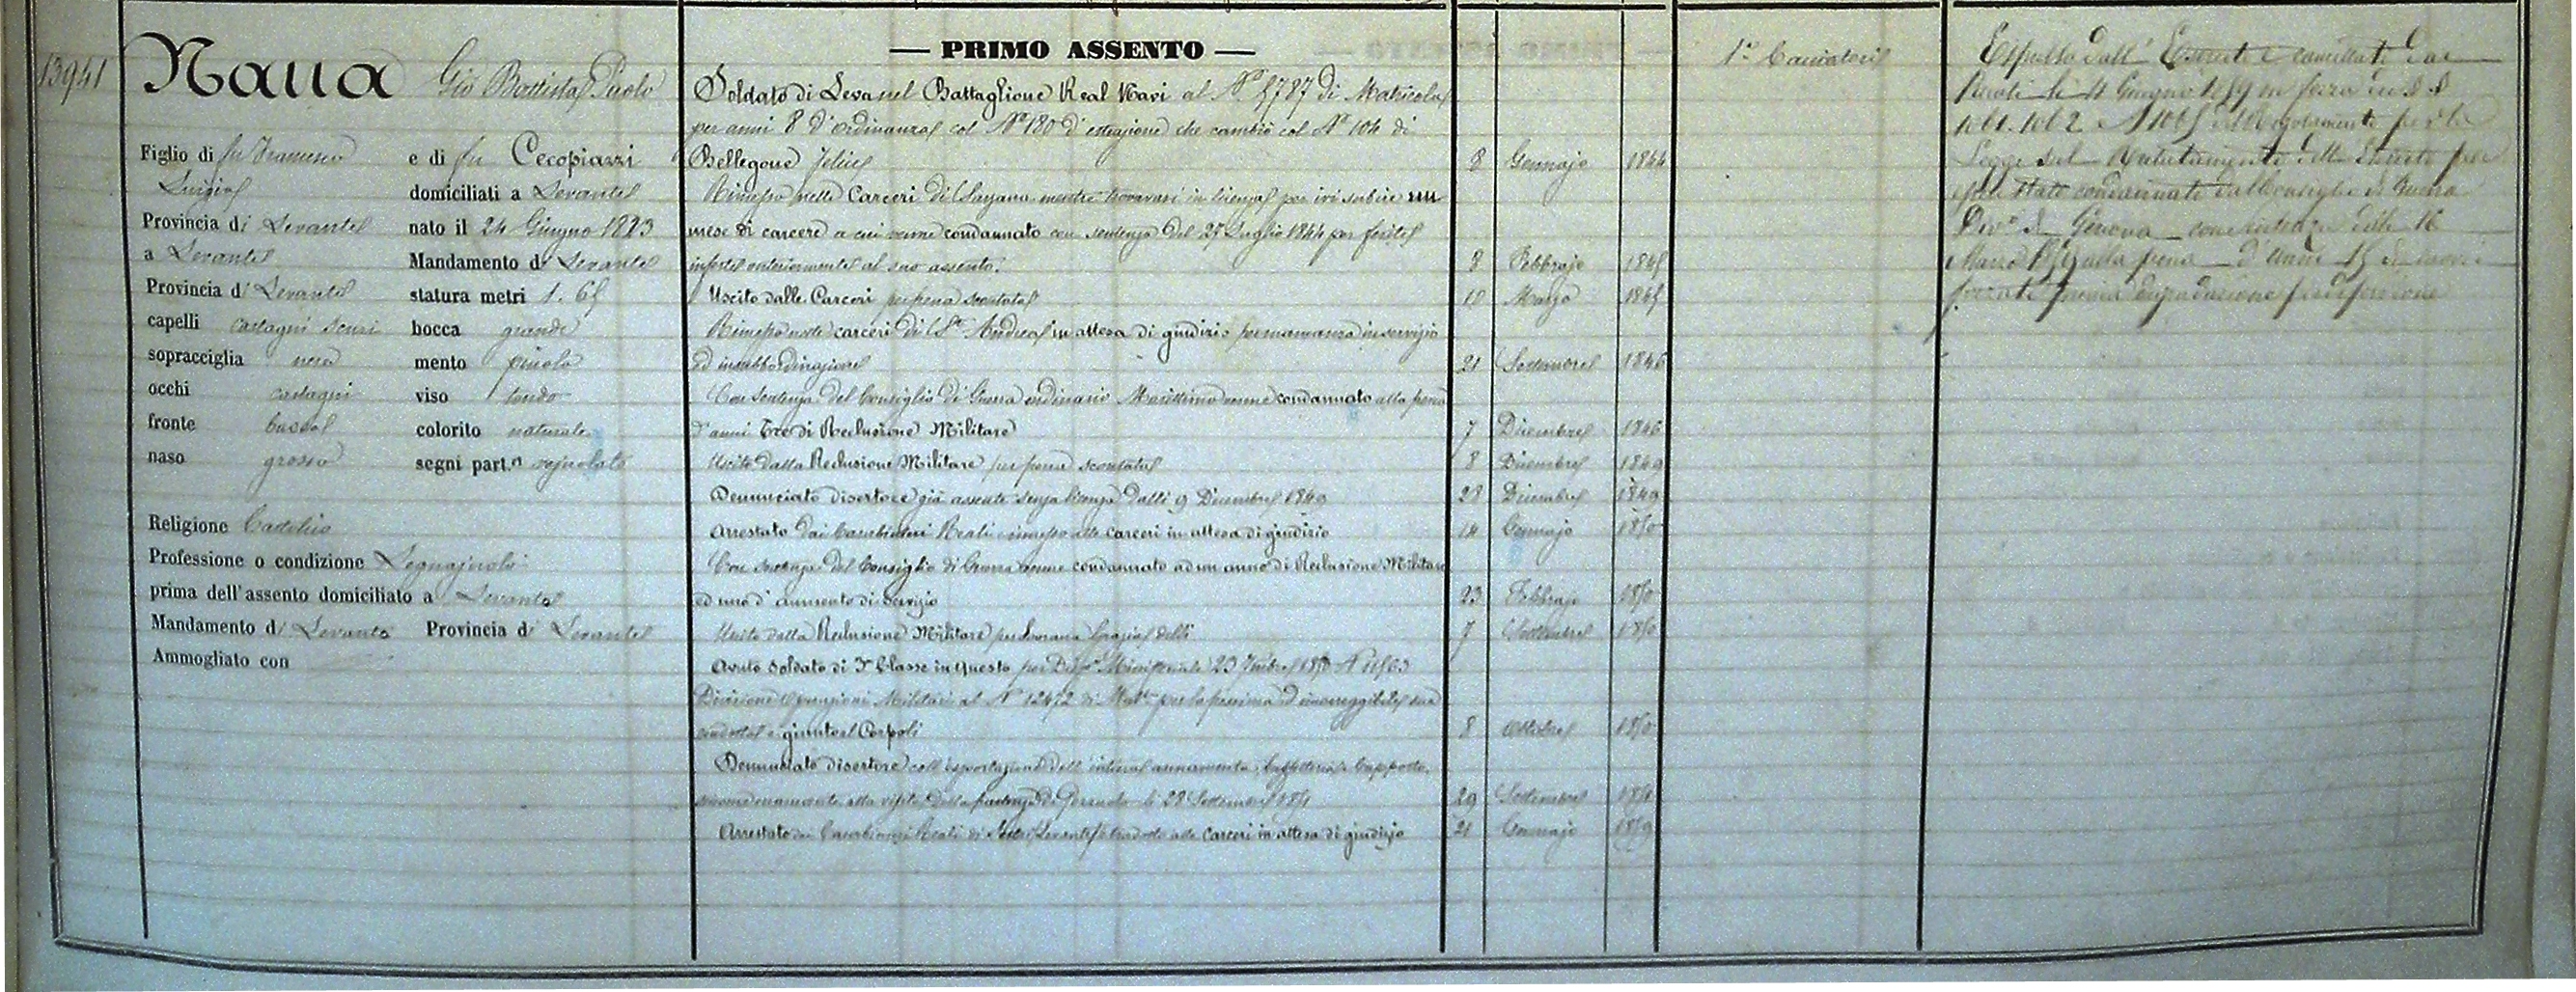 — PRIMO ASSENTO —
13941 Naua Gio Battista Paolo
Figlio di fu Francesco e di fu Cecopiazzi
Luigia domiciliati a Levante
Provincia di Levante nato il 24 Giugno 1823
a Levante Mandamento di Levante
Provincia di Levante statura metri 1. 65
capelli castagni scuri bocca grande
sopracciglia nere mento piccolo
occhi castagni viso tondo
fronte bassa colorito naturale
naso grosso segni part.i vajuolato
Religione Cattolica
Professione o condizione Legnajuolo
prima dell'assento domiciliato a Levante
Mandamento di Levanto Provincia di Levante
Ammogliato con
Soldato di Leva nel Battaglione Real Navi al N.º 5787 di Matricola
per anni 8 d'ordinanza col Nº 180 d'estrazione che cambiò col Nº 104 di
Bellegone Felice 8 Gennajo 1844
Rimesso nelle Carceri di Sarzana mentre trovavasi in licenza per ivi subire un
mese di carcere a cui venne condannato con sentenza del 27 Luglio 1844 per ferite
inferte anteriormente al suo assento. 8 Febbrajo 1845
Uscito dalle Carceri per pena scontata 10 Marzo 1845
Rimesso nelle carceri di St. Andrea in attesa di giudizio per mancanza in servizio
ed insubbordinazione 21 Settembre 1846
Con Sentenza del Consiglio di Guerra ordinario Marittimo venne condannato alla pena
d'anni Tre di Reclusione Militare 7 Dicembre 1846
Uscito dalla Reclusione Militare per pena scontata 8 Dicembre 1849
Denunciato disertore già assente senza licenza dalli 9 Dicembre 1849 28 Dicembre 1849
Arrestato dai Carabinieri Reali e rimesso alle carceri in attesa di giudizio 14 Gennajo 1850
Con sentenza del Consiglio di Guerra venne condannato ad un anno di Reclusione Militare
ed uno d'aumento di servizio 23 Febbrajo 1850
Uscito dalla Reclusione Militare per Sovrana Grazia delli 7 Settembre 1850
Avuto soldato di 3ª Classe in questo per Disp.º Ministeriale 23 7mbre 1850 N
Divisione Operazioni Militari al Nº 12472 di Matla per la pessima ed incorreggibile sua
condotta e giunto al Corpo li 8 Ottobre 1850
Denunciato disertore coll'esportazione dell'intiero armamento, buffetteria e cappotto,
alla visita della li 28 Settembre 29 Settembre
Arrestato dai Carabinieri Reali di Sestri Levante e tradotto alle carceri in attesa di giudizio 21 Gennajo 1859
1º Cacciatori
Espulso dall'Esercito e cancellato dai
Ruoli li 11 Giugno 1859 in forza dei §.§
del Regolamento per la
Legge sul Reclutamento dell'Esercito per
essere stato condannato dal Consiglio di Guerra
Div.º di Genova con sentenza delli 16
Marzo alla pena d'anni 15 di lavori
forzati previa degradazione per diserzione